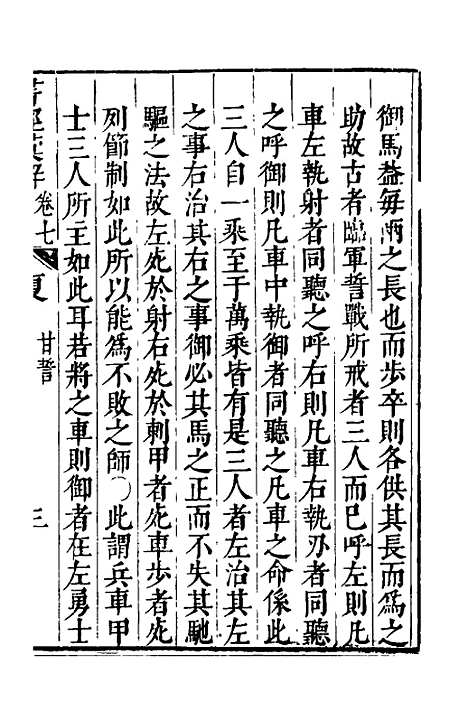 御馬葢每兩之長也而歩卒則各供其長而爲之
助故古者臨軍誓戰所戒者三人而已呼左則凡
車左執射者同聽之呼右則凡車右執刅者同聽
之呼御則凡車中執御者同聽之凡車之命係此
三人自一乘至于萬乘皆有是三人者左治其左
之事右治其右之事御必其馬之正而不失其馳
驅之法故左死於射右死於刺甲者死車歩者死
列節制如此所以能爲不敗之師○此謂兵車甲
士三人所主如此耳若將之車則御者在左勇士
卷七 夏 甘誓 三